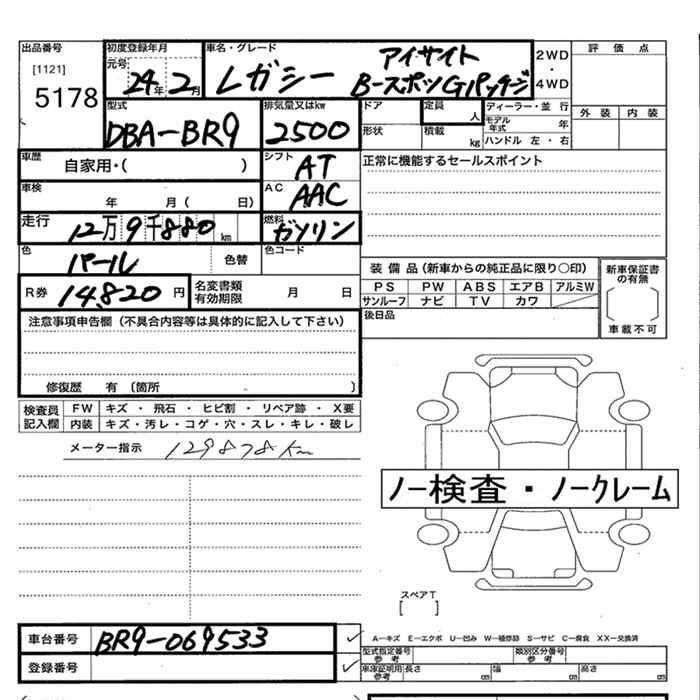 出品番号 [1121] 5178
初度登録年月 元号 24年 2月
車名・グレード レガシー アイサイト B-スポーツGパッケージ
2WD・4WD
評価点
外装 内装
型式 DBA-BR9
排気量又はkw 2500
ドア 形状
定員 人
積載 kg
ディーラー・並行
モデル年式 年
ハンドル 左・右
車歴 自家用・( )
シフト AT
正常に機能するセールスポイント
車検 年 月( 日)
AC AAC
走行 12万9千880km
燃料 ガソリン
色 パール 色替
色コード
装備品(新車からの純正品に限り○印)
PS PW ABS エアB アルミW
サンルーフ ナビ TV カワ
新車保証書の有無
車載不可
R券 14.820円
名変書類有効期限 月 日
後日品
注意事項申告欄(不具合内容等は具体的に記入して下さい)
修復歴 有 (箇所 )
検査員記入欄
FW キズ・飛石・ヒビ割・リペア跡・X要
内装 キズ・汚レ・コゲ・穴・スレ・キレ・破レ
メーター指示 129878km
ノー検査・ノークレーム
スペアT
[ ]
車台番号 BR9-069533
登録番号
A-キズ E-エクボ U-凹み W-補修跡 S-サビ C-腐食 XX-交換済
型式指定番号 参考
類別区分番号 参考
車庫証明用 参考 長さ cm 幅 cm 高さ cm